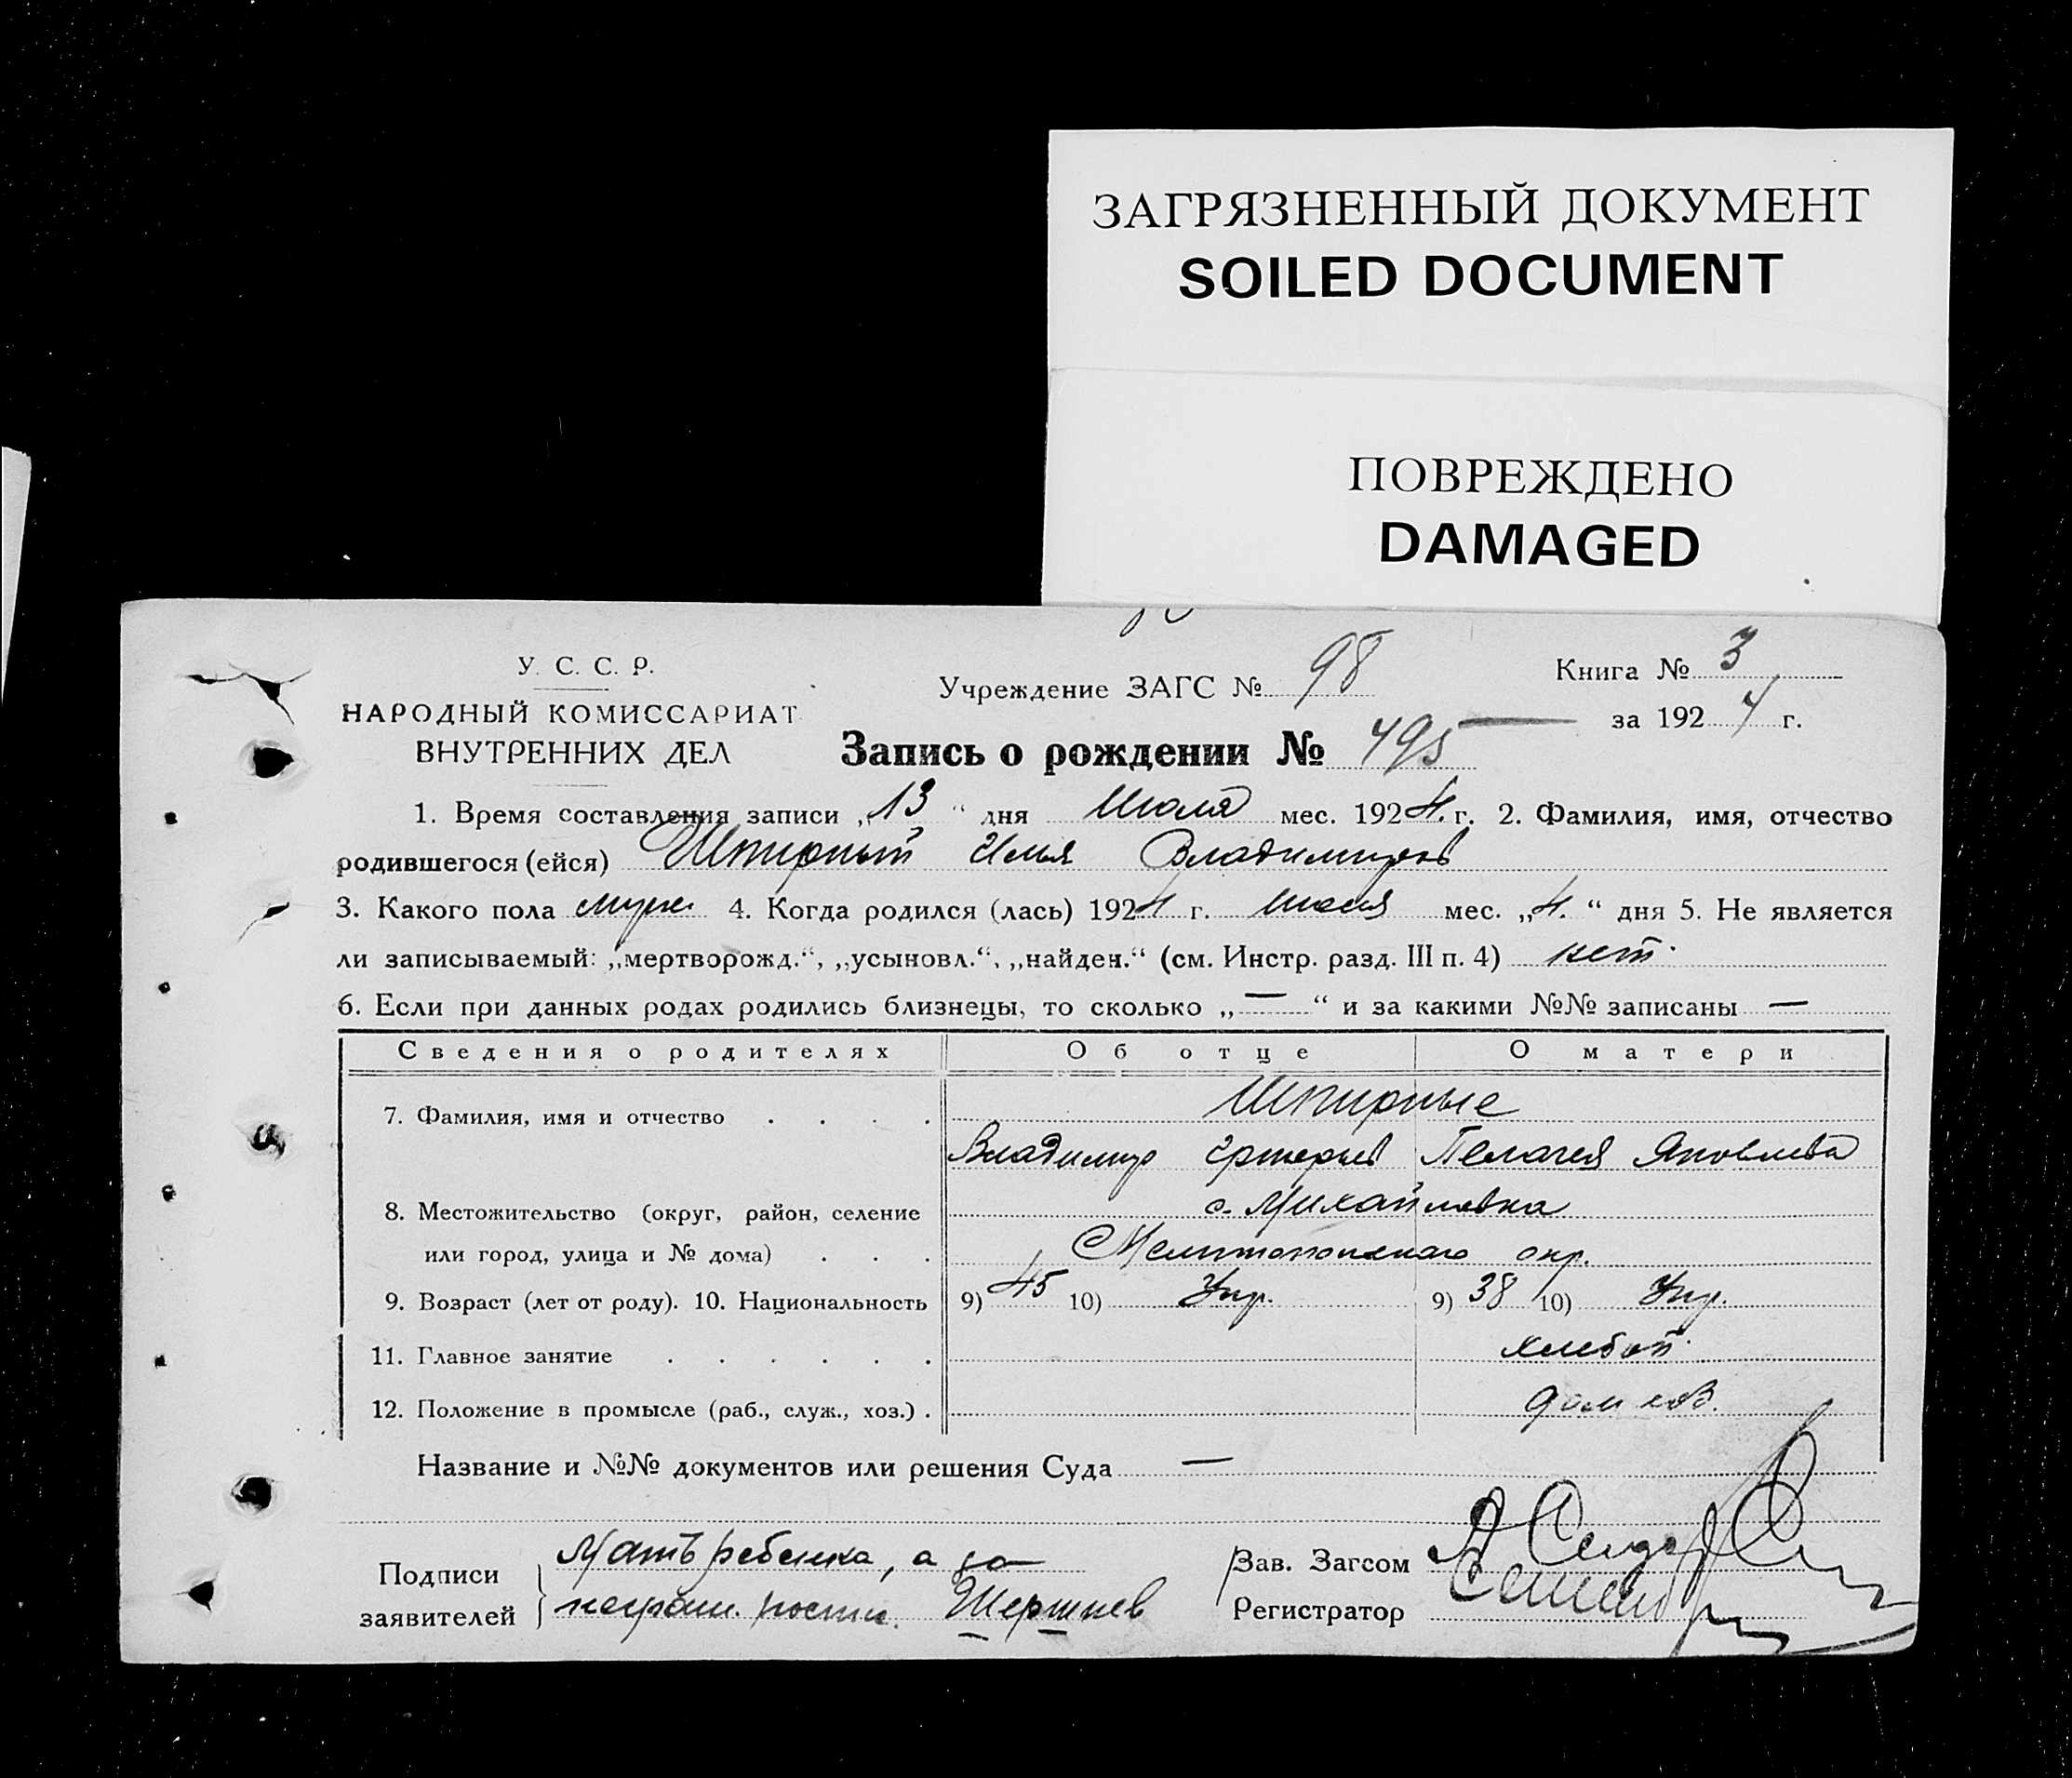 ЗАГРЯЗНЕННЫЙ ДОКУМЕНТ
SOILED DOCUMENT
ПОВРЕЖДЕНО
DAMAGED
У. С. С. Р.
НАРОДНЫЙ КОМИССАРИАТ
ВНУТРЕННИХ ДЕЛ
Учреждение ЗАГС № 98
Книга № 3
за 1924 г.
Запись о рождении № 495
1. Время составления записи „13“ дня Июля мес. 1924. г. 2. Фамилия, имя, отчество
родившегося (ейся) Шпирный Илья Владимиров
3. Какого пола муж. 4. Когда родился (лась) 1924 г. июля мес. „4.“ дня 5. Не является
ли записываемый: „мертворожд.“, „усыновл.“, „найден.“ (см. Инстр. разд. III п. 4) нет.
6. Если при данных родах родились близнецы, то сколько „—“ и за какими №№ записаны —
Сведения о родителях Об отце О матери
7. Фамилия, имя и отчество . . . . Шпирные
Владимир Пелагея Яковлева
8. Местожительство (округ, район, селение с. Михайловка
или город, улица и № дома) . . . Мелитопольского окр.
9. Возраст (лет от роду). 10. Национальность 9) 45 10) Укр. 9) 38 10) Укр.
11. Главное занятие . . . . . . хлебоп.
12. Положение в промысле (раб., служ., хоз.) . дом хоз.
Название и №№ документов или решения Суда —
Подписи заявителей
Мать ребенка, а за
неграм. росп.
Зав. Загсом
Регистратор